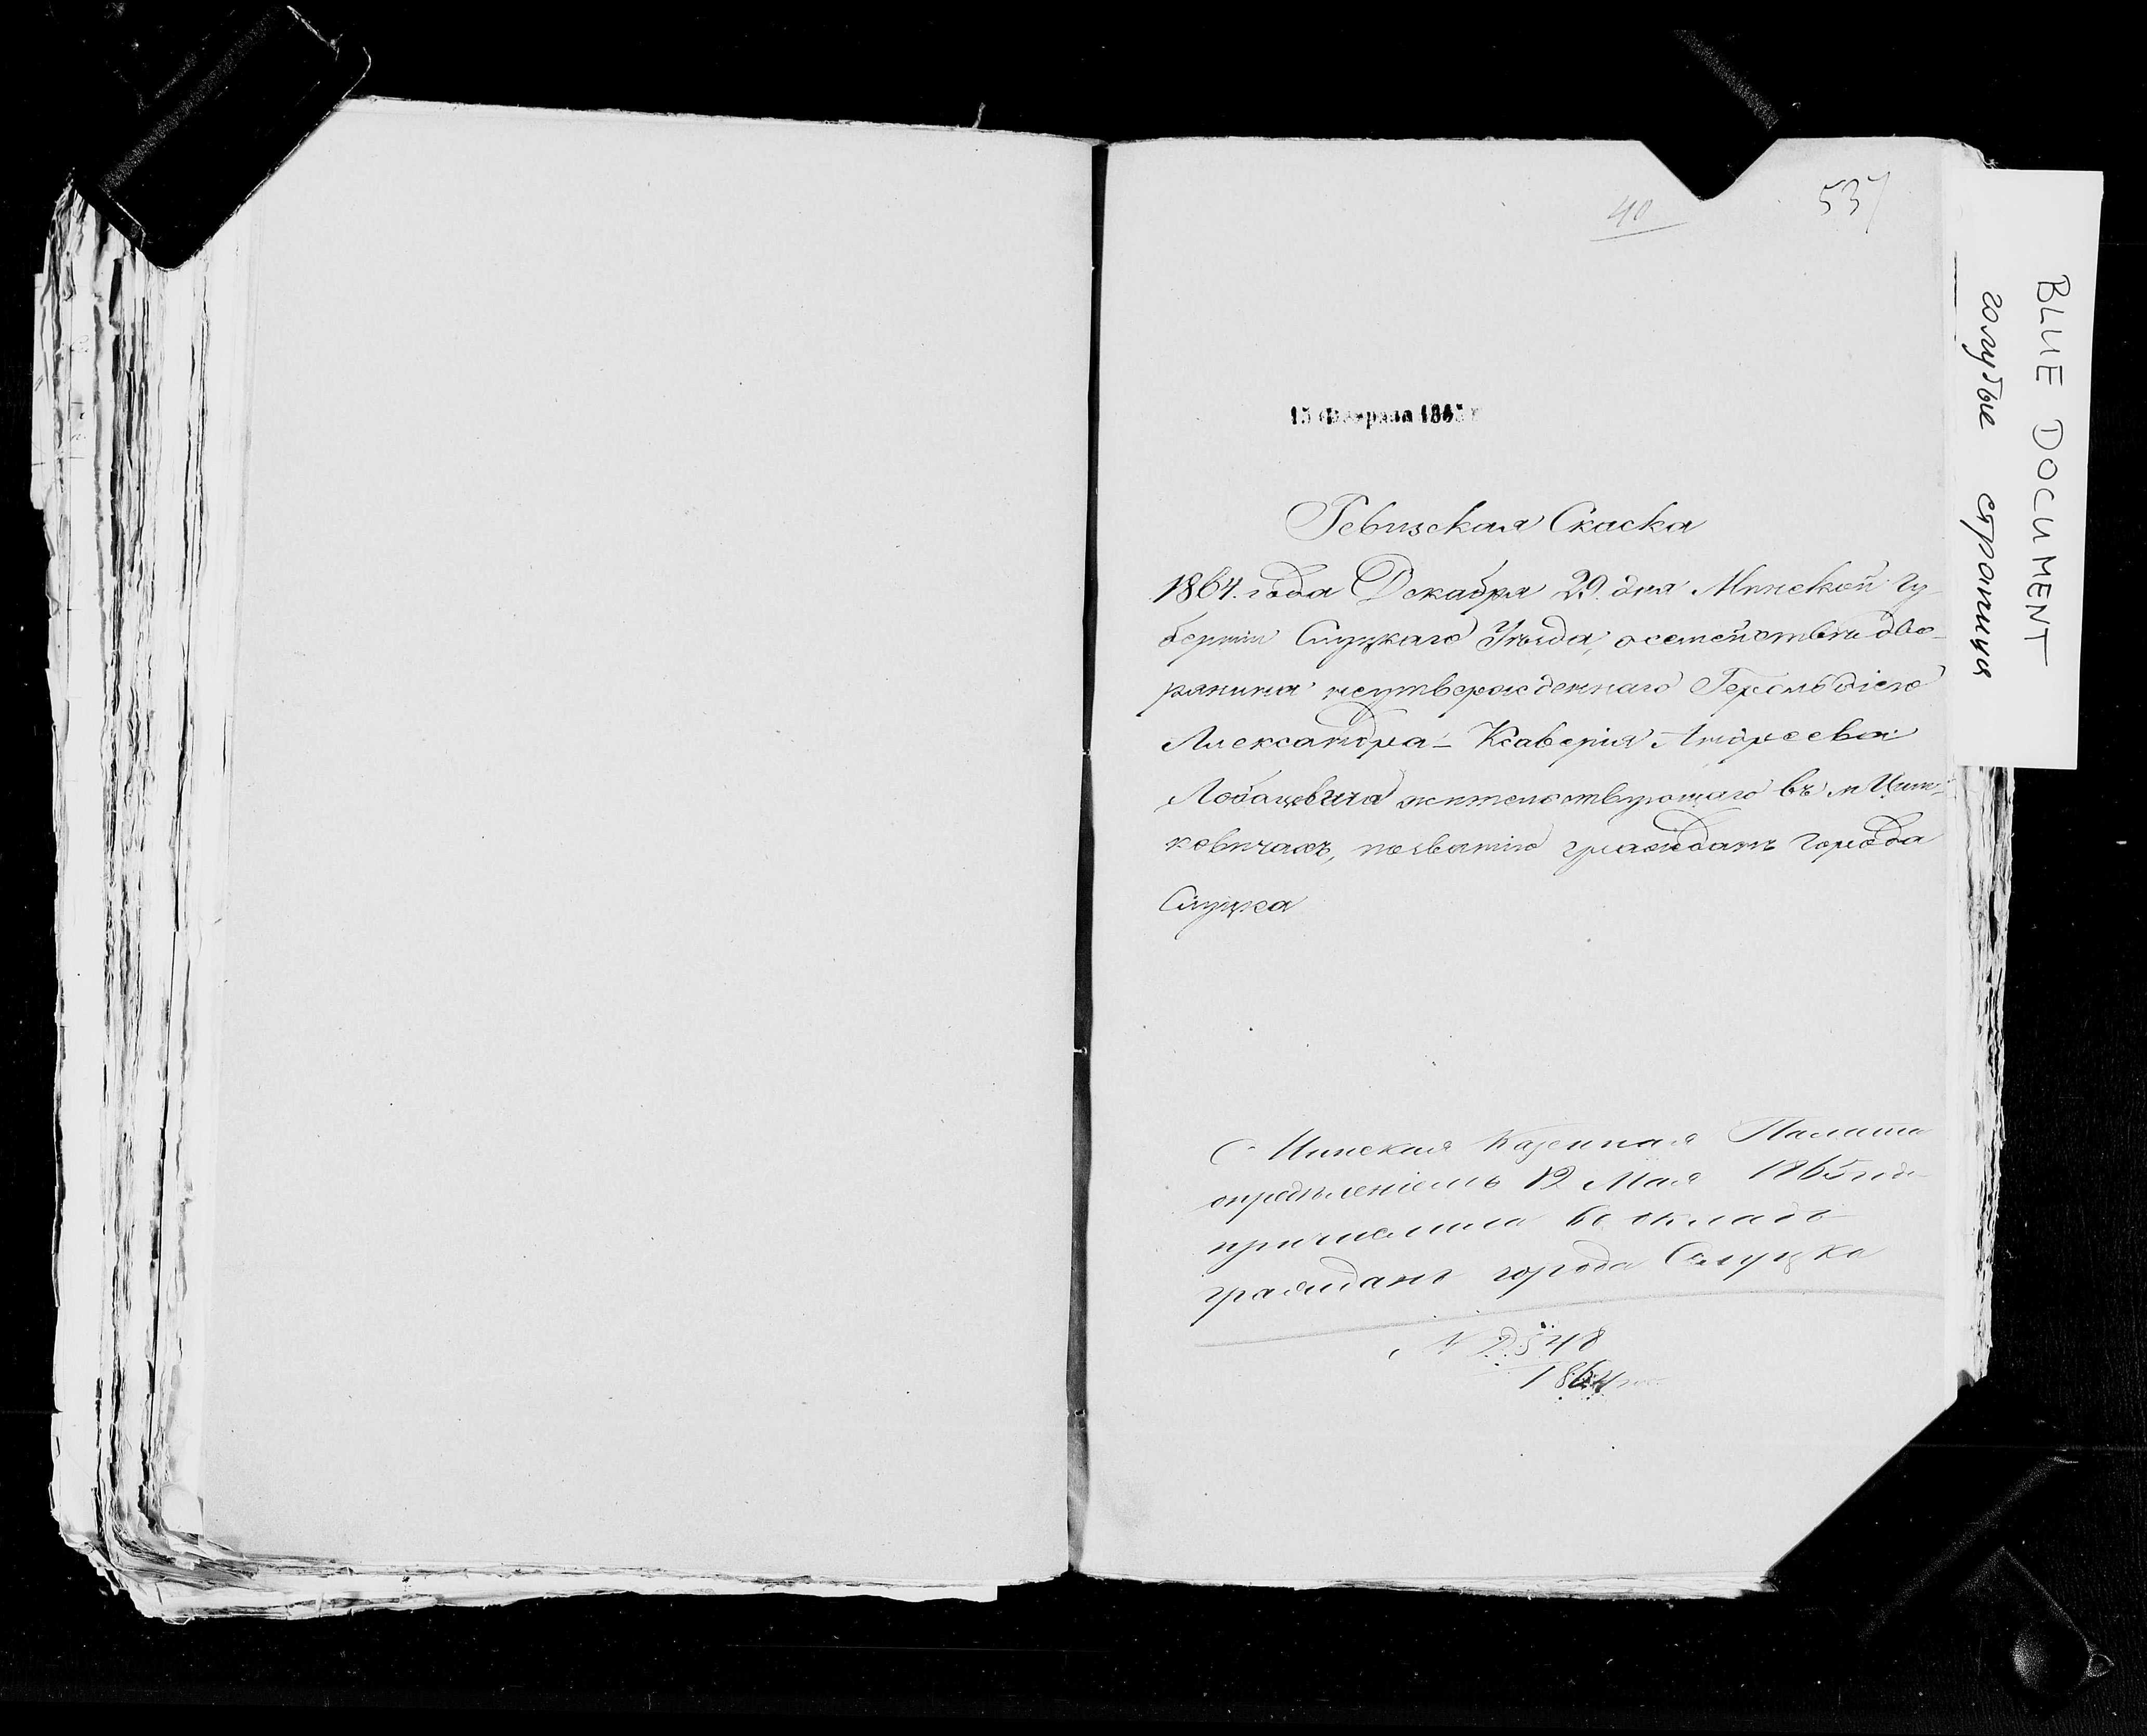 40
537
15 Февраля 1865 г
Ревизская Скаска
1864. года Декабря 29. дня Минской гу-
берніи Слуцкаго Уѣзда, о семействѣ дво-
рянина неутвержденнаго Герольдіею
Александра - Ксаверія Андреева
Лобацевича жительствующаго въ м Цим-
ковичахъ, по званію гражданъ города
Слуцка
Минская Казенная Палата
опредѣленіемъ 12 Мая 1865 года
причислила въ окладъ
гражданъ города Слуцка
N 2548
1864
BLUE DOCUMENT
голубые страница